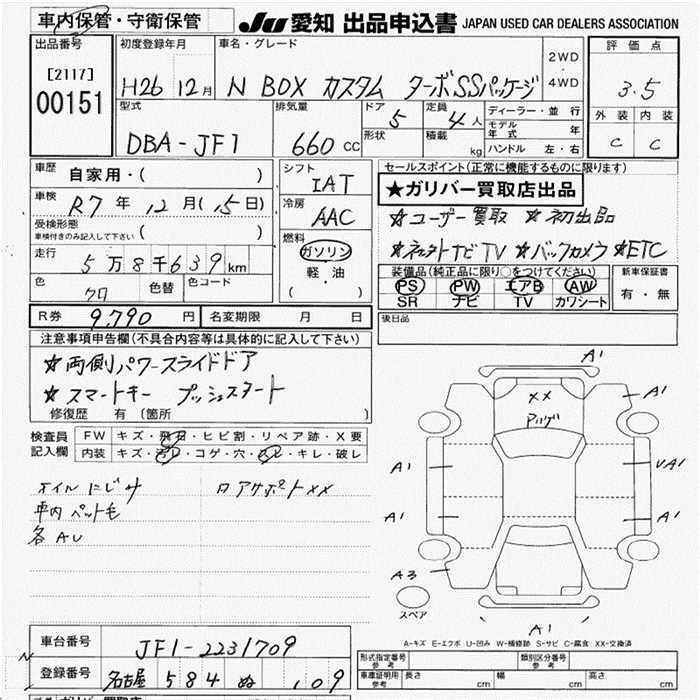 車内保管・守衛保管
JU 愛知 出品申込書 JAPAN USED CAR DEALERS ASSOCIATION
出品番号
[2117]
00151
初度登録年月
H26 12月
車名・グレード
N BOX カスタム ターボSSパッケージ
2WD
・
4WD
評価点
3.5
外装 内装
C C
型式
DBA-JF1
排気量
660 CC
ドア
5
形状
定員
4人
積載
kg
ディーラー・並行
モデル年式 年
ハンドル 左・右
車歴
自家用・( )
車検
R7年 12月(15日)
受検形態
車検付きのみ記入して下さい ( )
走行
5万8千639km
色
クロ
色替
色コード
シフト
IAT
冷房
AAC
燃料
ガソリン
軽・油
( )
セールスポイント(正常に機能するものに限ります)
★ガリバー買取店出品
☆ユーザー買取 ☆初出品
☆ナビTV ☆バックカメラ ☆ETC
装備品(純正品に限り○をつけてください)
PS PW エアB AW
SR ナビ TV カワシート
新車保証書
有・無
R券 9,790円 名変期限 月 日
後日品
注意事項申告欄(不具合内容等は具体的に記入して下さい)
☆両側パワースライドドア
☆スマートキー プッシュスタート
修復歴 有 (箇所 )
検査員
記入欄
FW キズ・飛石・ヒビ割・リペア跡・X要
内装 キズ・汚レ・コゲ・穴・スレ・キレ・破レ
オイルにじみ
ロアサポートXX
車内ペット毛
各AU
A1
XX
A1
A1
UA1
A1
A1
A3
スペア
A1
A-キズ E-エクボ U-凹み W-補修跡 S-サビ C-腐食 XX-交換済
車台番号 JF1-2231709
登録番号 名古屋 584 ぬ ・109
形式指定番号
参考
類別区分番号
参考
車庫証明用
参考
長さ cm 幅 cm 高さ cm
ガリバー買取店